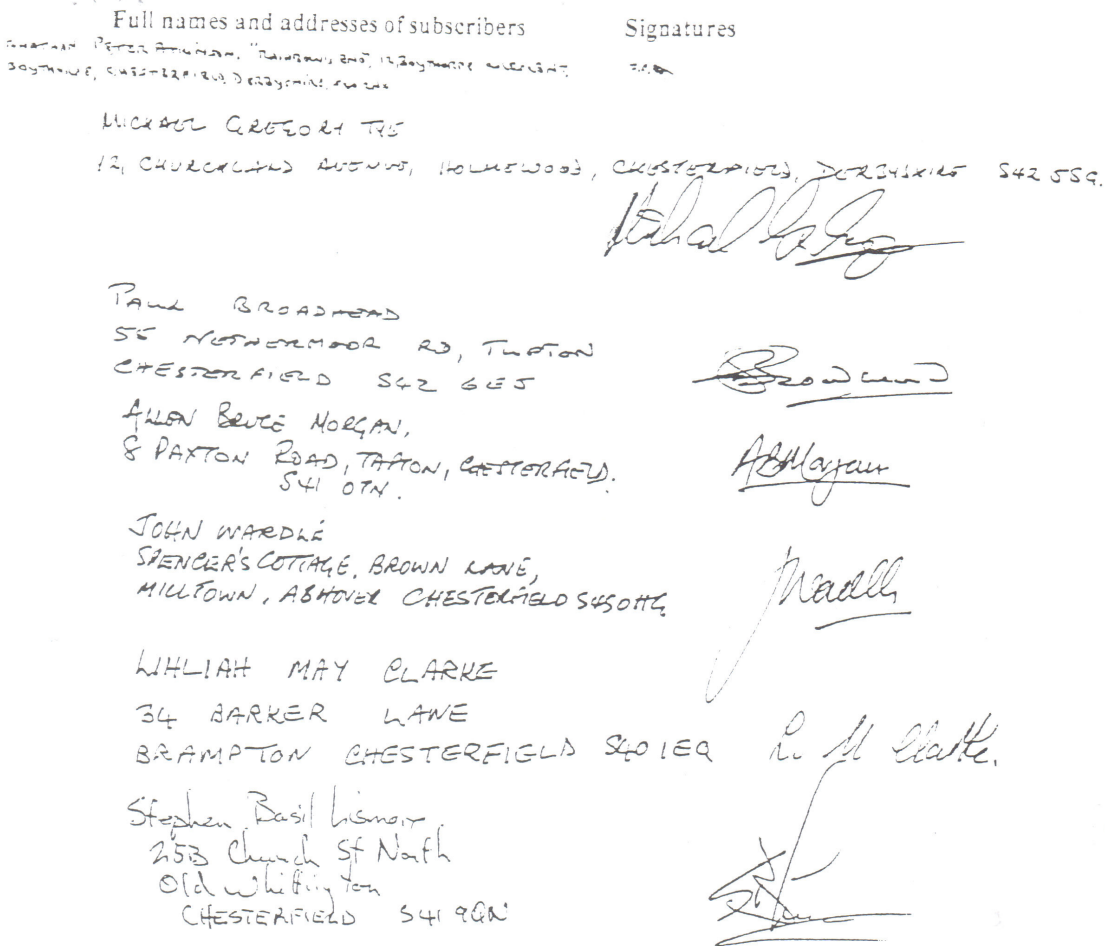 Full names and addresses of subscribers Signatures
PETER ATKINSON, "RAINBOWS END", 12, BOYTHORPE CRESCENT,
BOYTHORPE, CHESTERFIELD, DERBYSHIRE,
MICHAEL GREGORY TYE
12, CHURCHLAND AVENUE, HOLMEWOOD, CHESTERFIELD, DERBYSHIRE S42 5SG.
PAUL BROADHEAD
55 NETHERMOOR RD, TUPTON
CHESTERFIELD S42 6EJ
Broadhead
ALLEN BRUCE MORGAN,
8 PAXTON ROAD, TAPTON, CHESTERFIELD.
S41 0TN.
ABMorgan
JOHN WARDLE
SPENCER'S COTTAGE, BROWN LANE,
MILLTOWN, ASHOVER CHESTERFIELD S45 0HG
JWardle
LILLIAH MAY CLARKE
34 BARKER LANE
BRAMPTON CHESTERFIELD S40 1EQ L. M Clarke.
Stephen Basil Lismore
25B Church St North
Old Whittington
CHESTERFIELD S41 9QN